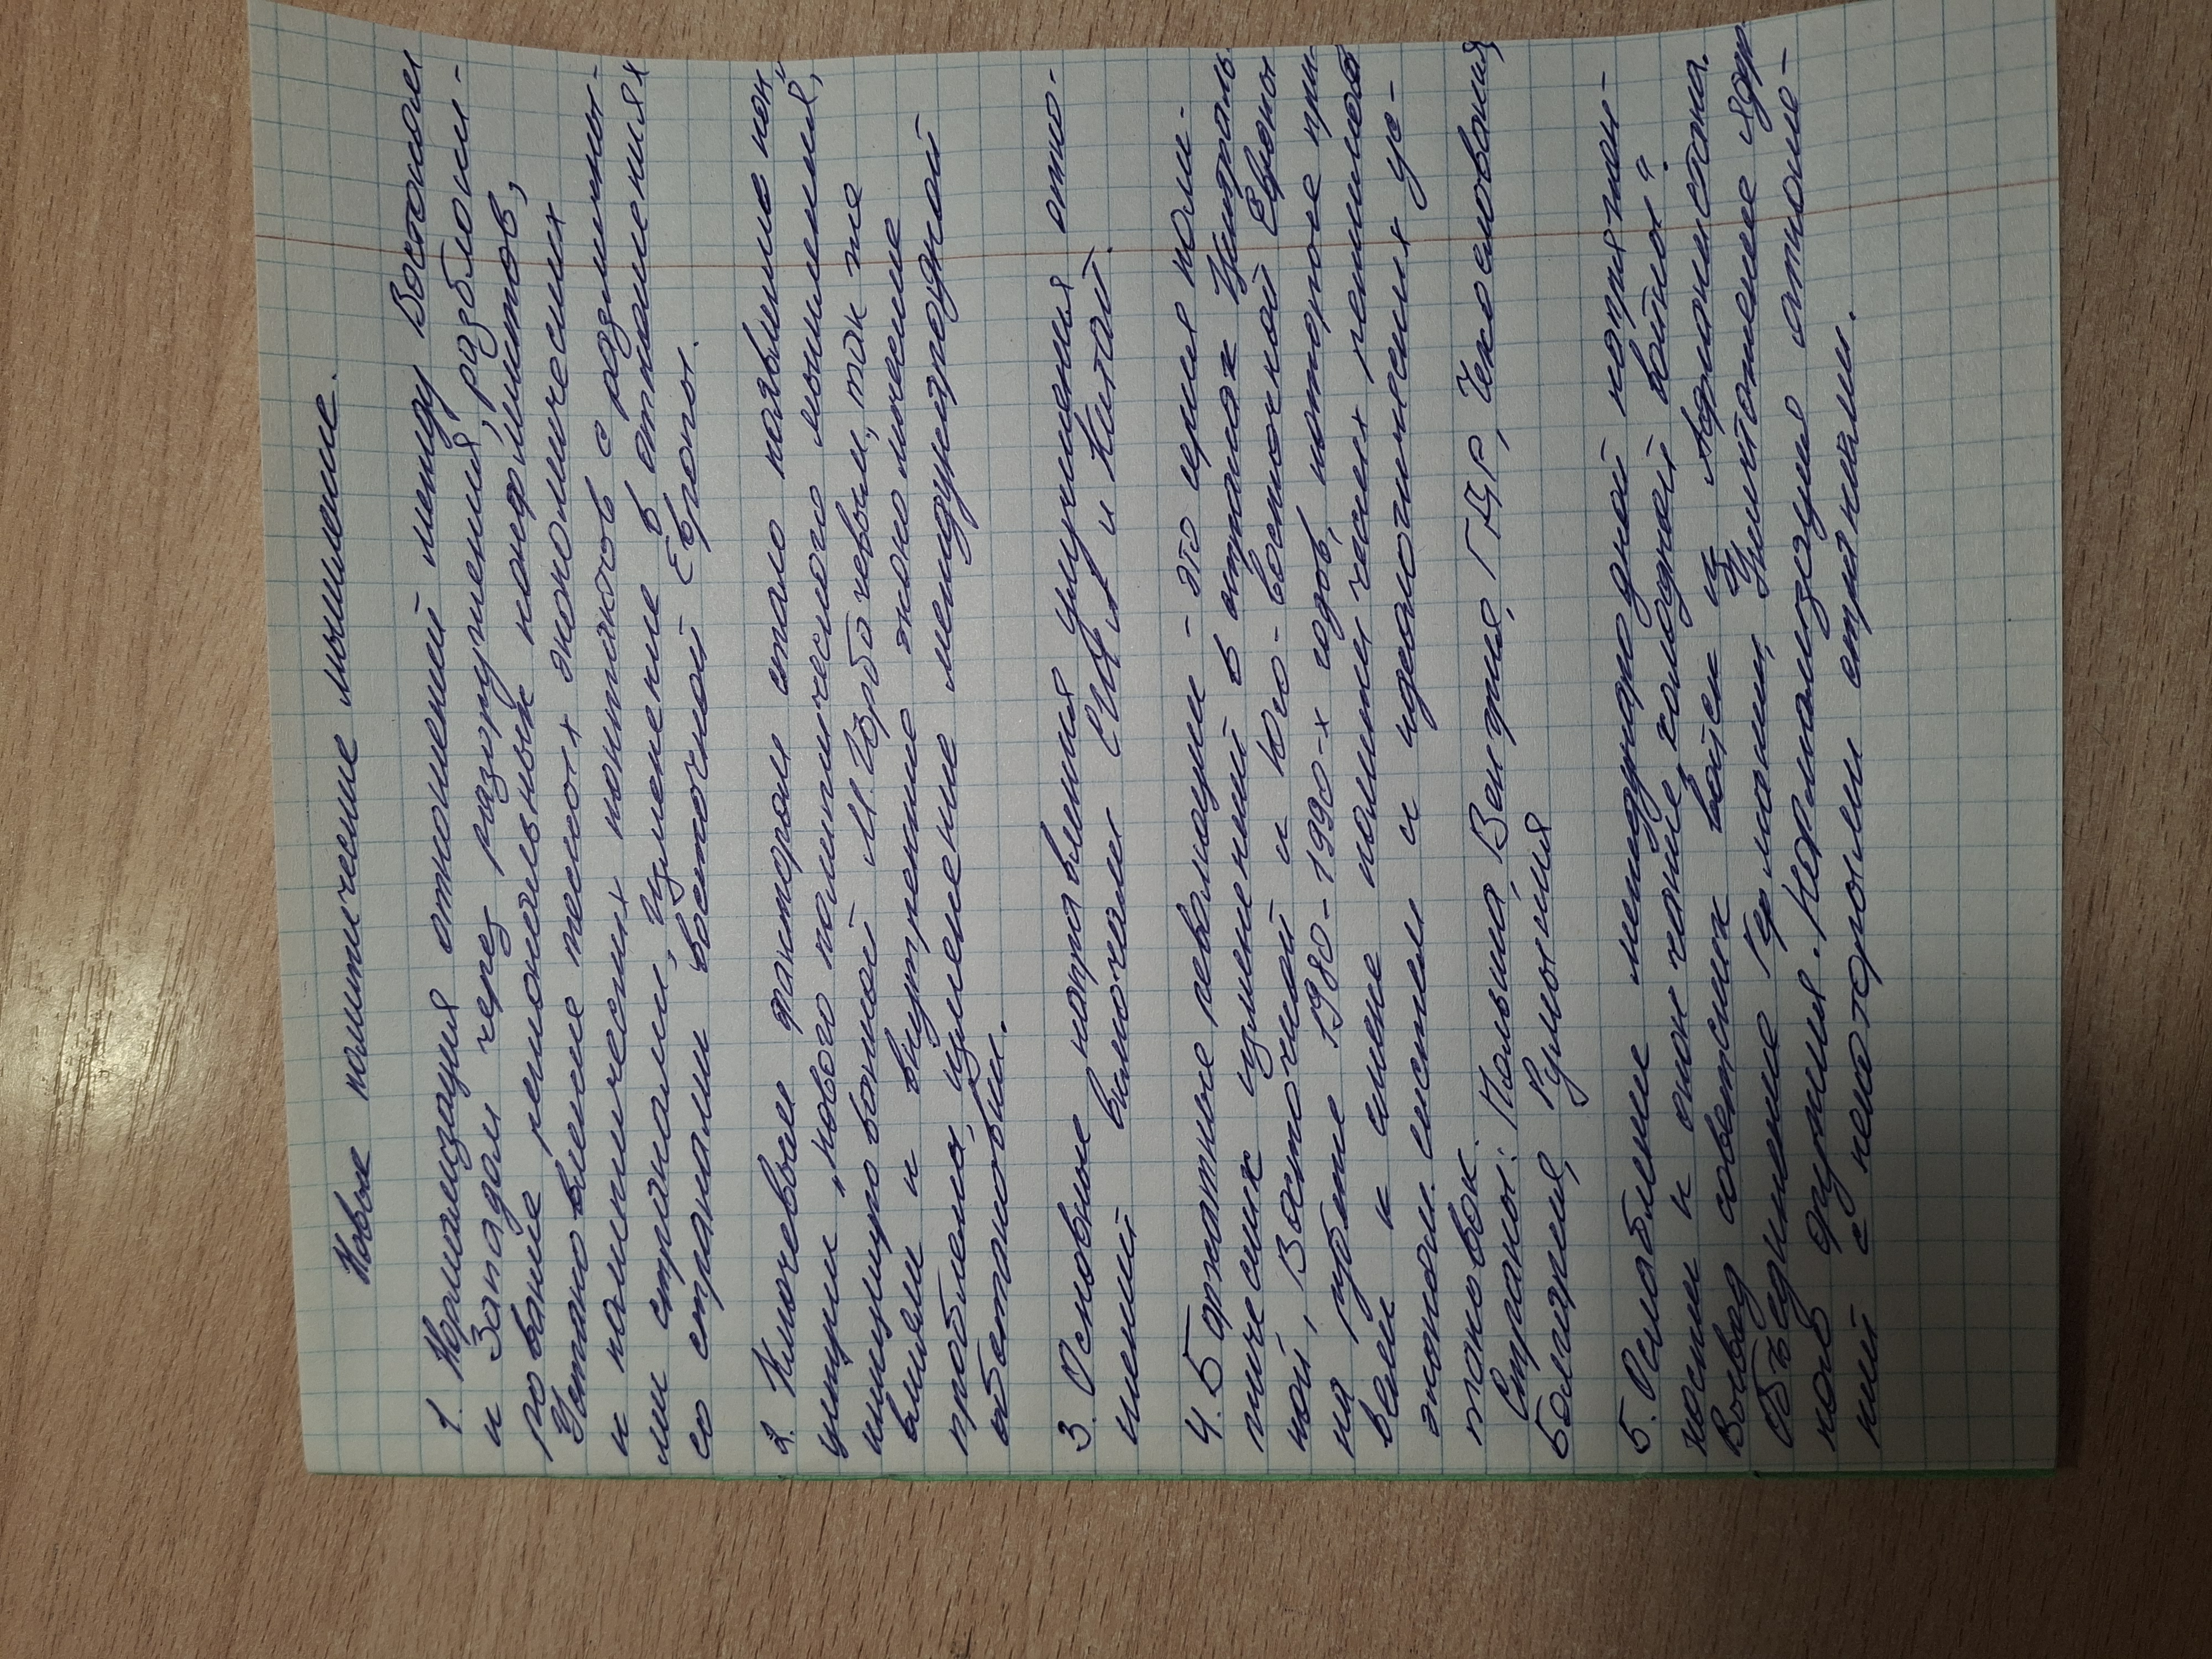 Новое политическое мышление.
1. Нормализация отношений между Востоком
и Западом через разоружения, разблоки-
рование региональных конфликтов,
Установление тесных экономических
и политических контактов с различны-
ми странами, изменение в отношениях
со странами восточной Европы.
2. Ключевым фактором стало появление кон-
цепции "нового политического мышления",
инициированной М. Горбачевым, так же
влияли и внутренние экономические
проблемы, изменение международной
обстановки.
3. Основные направления улучшения отно-
шений включали США и Китай.
4. Бархатные революции - это серия поли-
тических изменений в странах Централь
ной, Восточной и Юго-восточной Европы
на рубеже 1980-1990-х годов, которое при-
вели к смене политических режимов
эконом. систем и идеологических ус-
тановок.
Страны: Польша, Венгрия, ГДР, Чехословакия,
Болгария, Румыния
5. Ослабление международной напряжен-
ности и окончание "холодной войны".
Вывод советских войск из Афганистана.
Объединение Германии, Уничтожение ядер
ного оружия. Нормализация отноше-
ний с некоторыми странами.